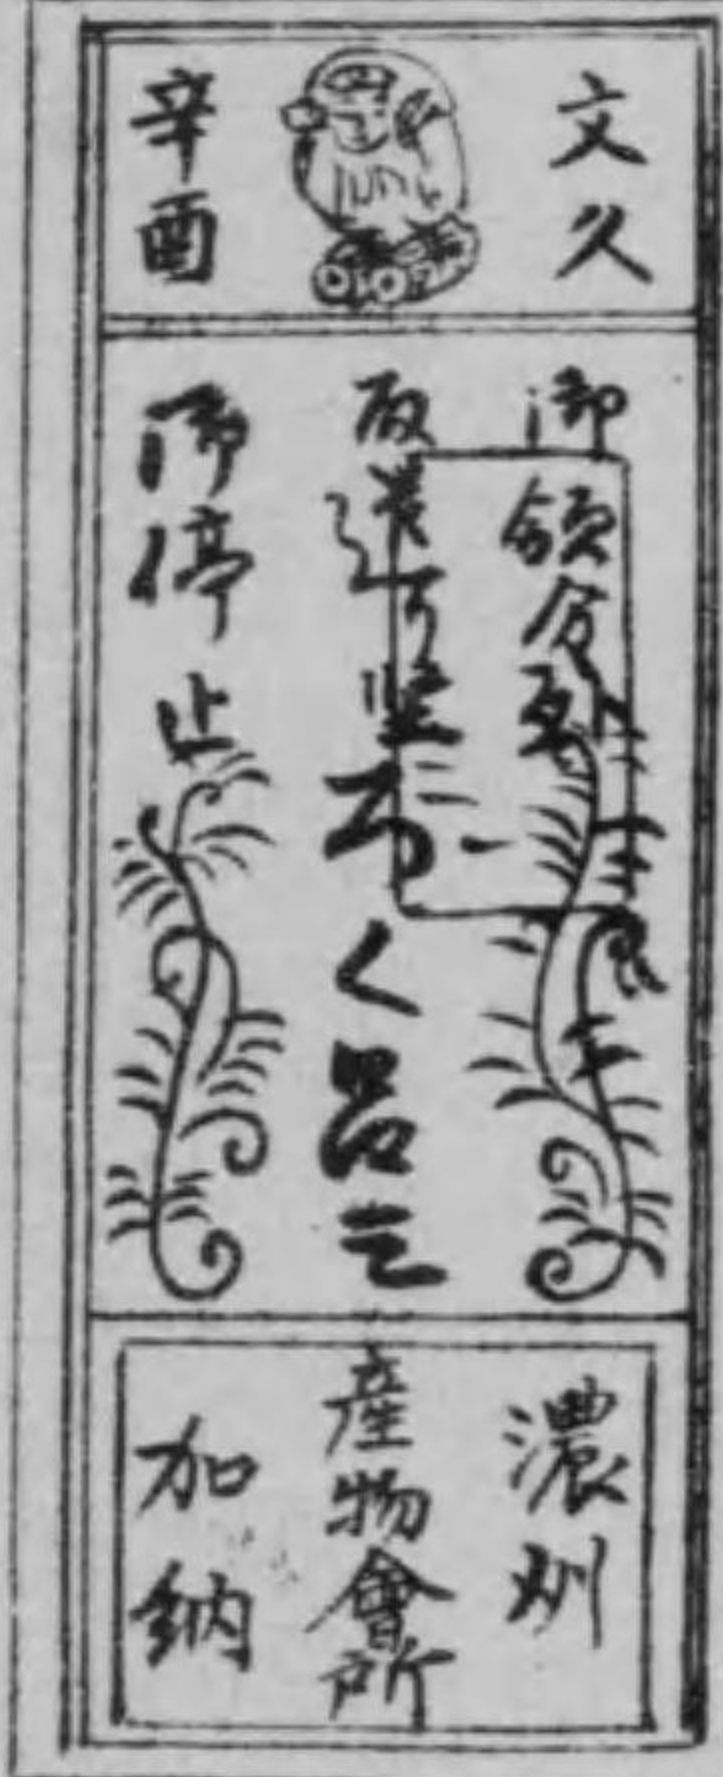 文久
辛酉
御領分外
取遣可堅
く
御停止
濃州
産物會所
加納